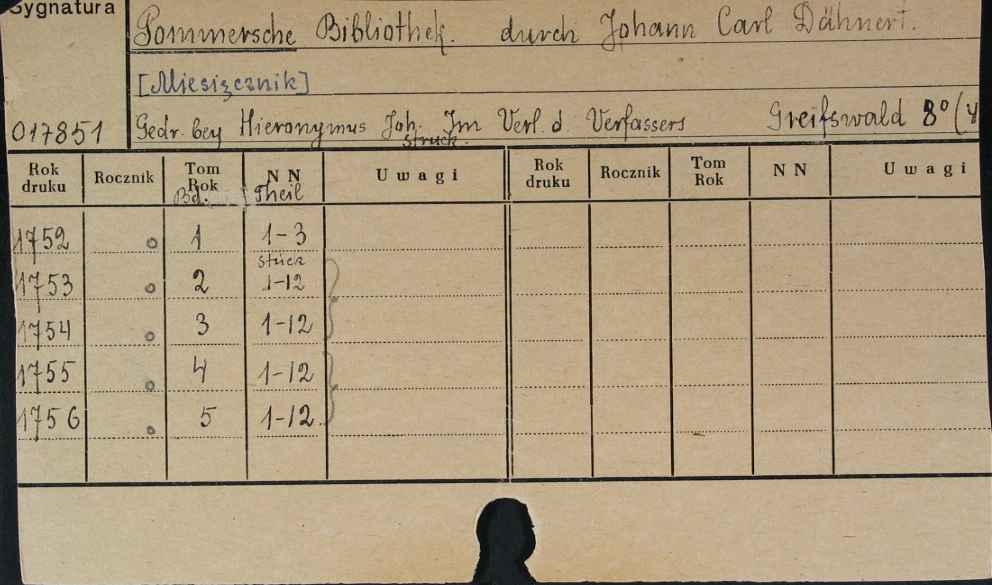 Sygnatura
Pommersche Bibliothek. durch Johann Carl Dähnert.
[Miesięcznik]
017851 Gedr. bey Hieronymus Joh. Struck. Im Verl. d. Verfassers Greifswald 8° (4
Rok druku Rocznik Tom Rok Bd. NN Theil Uwagi Rok druku Rocznik Tom Rok NN Uwagi
1752 o 1 1-3
Stück
1753 o 2 1-12
1754 o 3 1-12
1755 o 4 1-12
1756 o 5 1-12